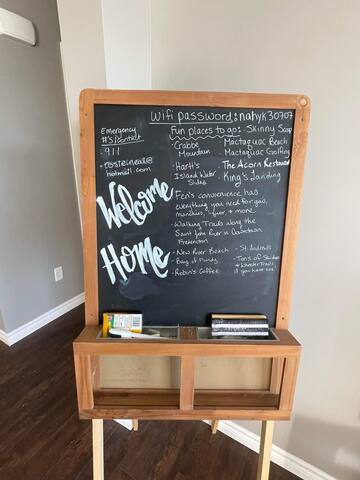 Wifi password: nahyk30707
Emergency
#'s/contact
- 911
Fun places to go:
- Crabbe
Mountain
- Hartt's
Island Water
Slides
- Skinny Scoop
- Mactaquac Beach
- Mactaquac Golfing
- The Acorn Restaurant
- King's Landing
Welcome
Home
- Fen's convenience has
everything you need for gas,
munchies, liquor, & more
- Walking Trails along the
Saint John River in Downtown
Fredericton
- New River Beach
Bay of Fundy
- Robin's Coffee
- St. Andrews
- Tons of Skidoo
if you have one